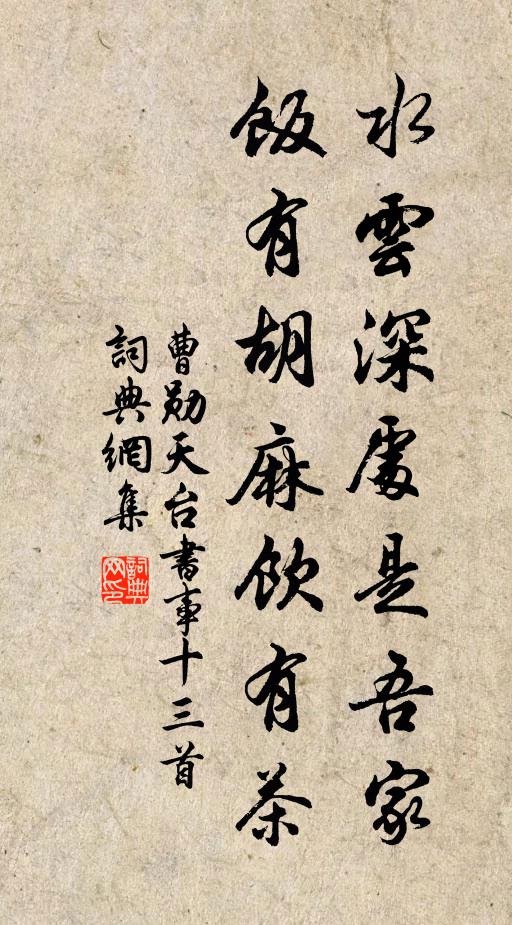 水雲深處是吾家
飯有胡麻飲有茶
曹勛天台書事十三首
詞典網集
詞典
网印